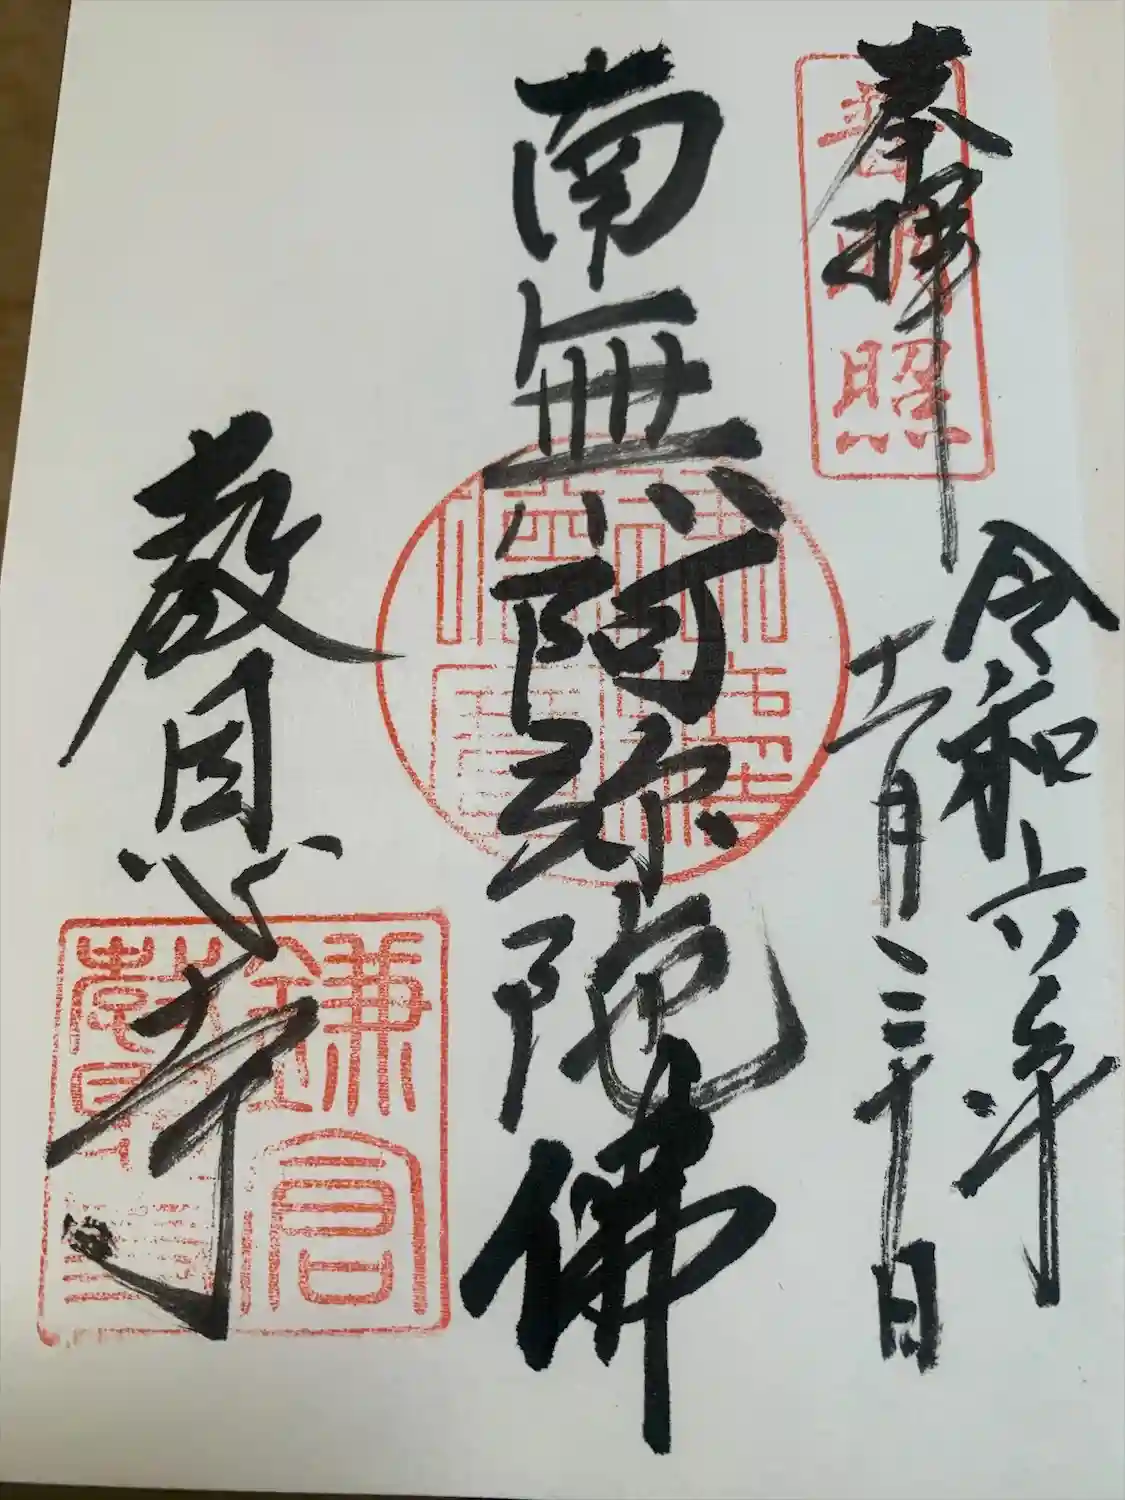 奉拝
普明照
令和六年
十一月三十日
南無阿弥陀佛
教恩寺
鎌倉